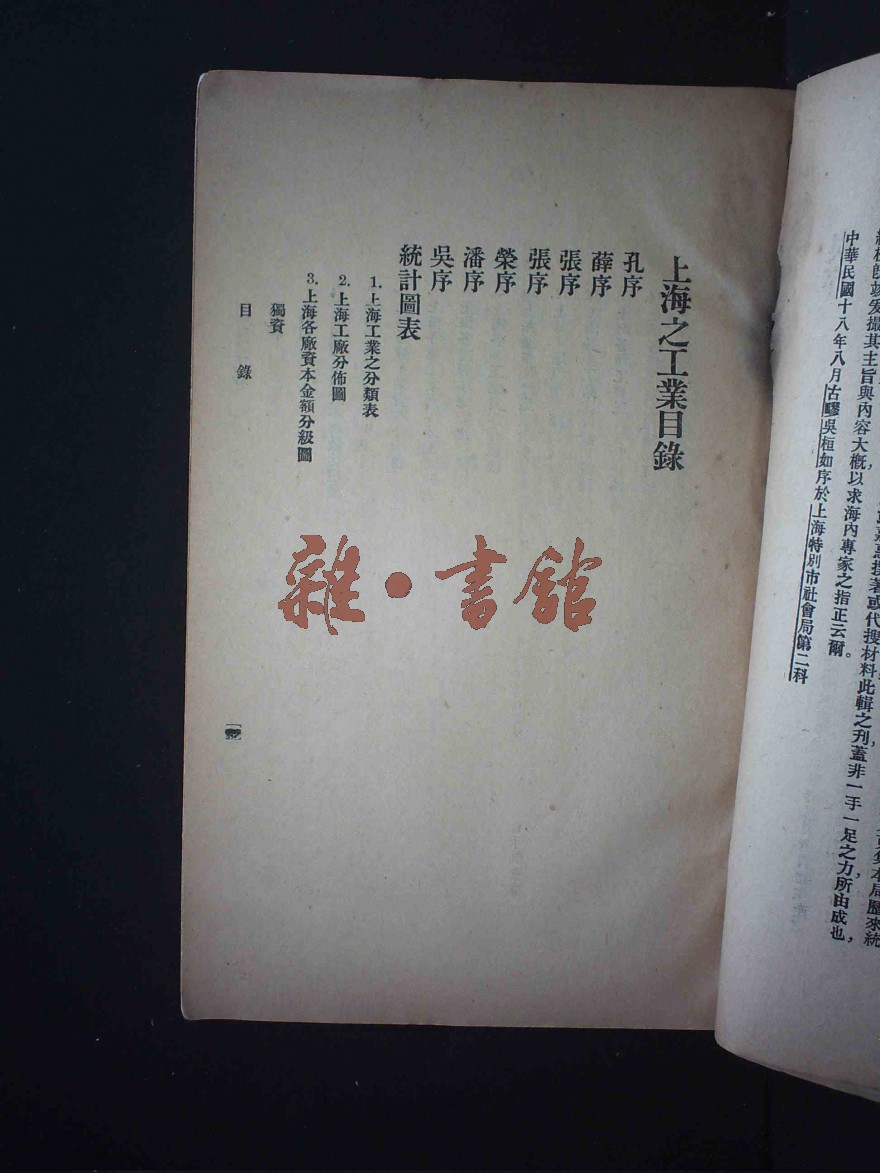 其主旨與內容大概以求海內專家之指正云爾。
中華民國十八年八月古疁吳桓如序於上海特別市社會局第二科
撰著或代搜材料此輯之刊蓋非一手一足之力所由成也,
本局歷來統
上海之工業目錄
孔序
薛序
張序
張序
榮序
潘序
吳序
統計圖表
1.上海工業之分類表
2.上海工廠分佈圖
3.上海各廠資本金額分級圖
獨資
目 錄
雜·書館